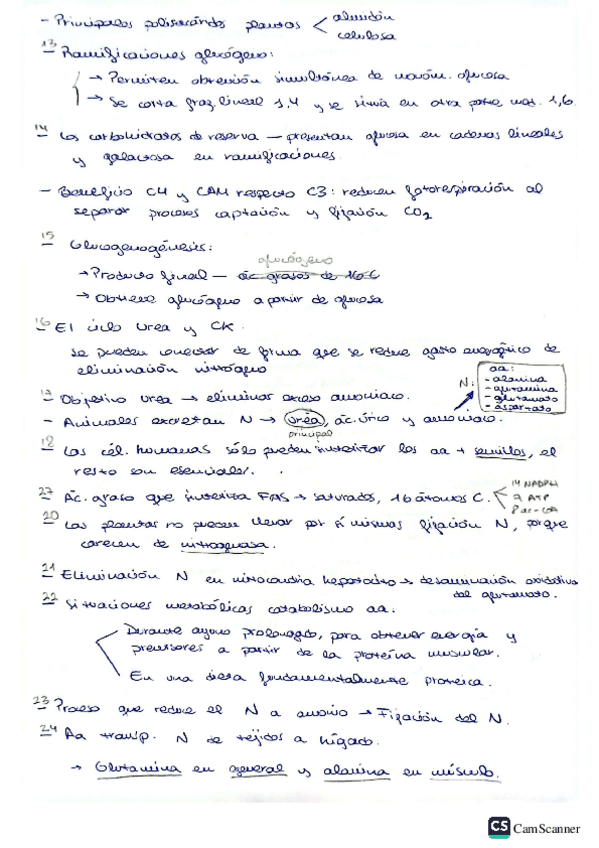 - Principales polisacáridos plantas < almidón
celulosa
13 Ramificaciones glucógeno:
→ Permiten obtención simultánea de monóm. glucosa
→ Se corta frag. lineal 1,4 y se sitúa en otra parte med. 1,6.
14 Los carbohidratos de reserva — presentan glucosa en cadenas lineales
y galactosa en ramificaciones.
- Beneficio C4 y CAM respecto C3: reducen fotorespiración al
separar procesos captación y fijación CO2
15 Glucogenogénesis:
glucógeno
→ Producto final — ác. grasos de 16 C
→ Obtiene glucógeno a partir de glucosa
16 El ciclo Urea y CK.
Se pueden conectar de forma que se reduce gasto energético de
eliminación nitrógeno
aa:
- alanina
- glutamina
- glutamato
- aspartato
N:
17 Objetivo urea → eliminar exceso amoniaco.
- Animales excretan N → urea, ác. úrico y amoniaco.
principal
18 Las cél. humanas sólo pueden sintetizar los aa + sencillos, el
resto son esenciales.
27 Ác. graso que sintetiza FAS → saturados, 16 átomos C. < 14 NADPH
7 ATP
8 ac-CoA
20 Las plantas no pueden llevar por sí mismas fijación N, porque
carecen de nitrogenasa.
21 Eliminación N en mitocondria hepatocito → desaminación oxidativa
del glutamato.
22 Situaciones metabólicas catabolismo aa:
Durante ayuno prolongado, para obtener energía y
precursores a partir de la proteína muscular.
En una dieta fundamentalmente proteica.
23 Proceso que reduce el N a amonio → Fijación del N.
24 Aa transp. N de tejidos a hígado.
→ Glutamina en general y alanina en músculo.
CS CamScanner